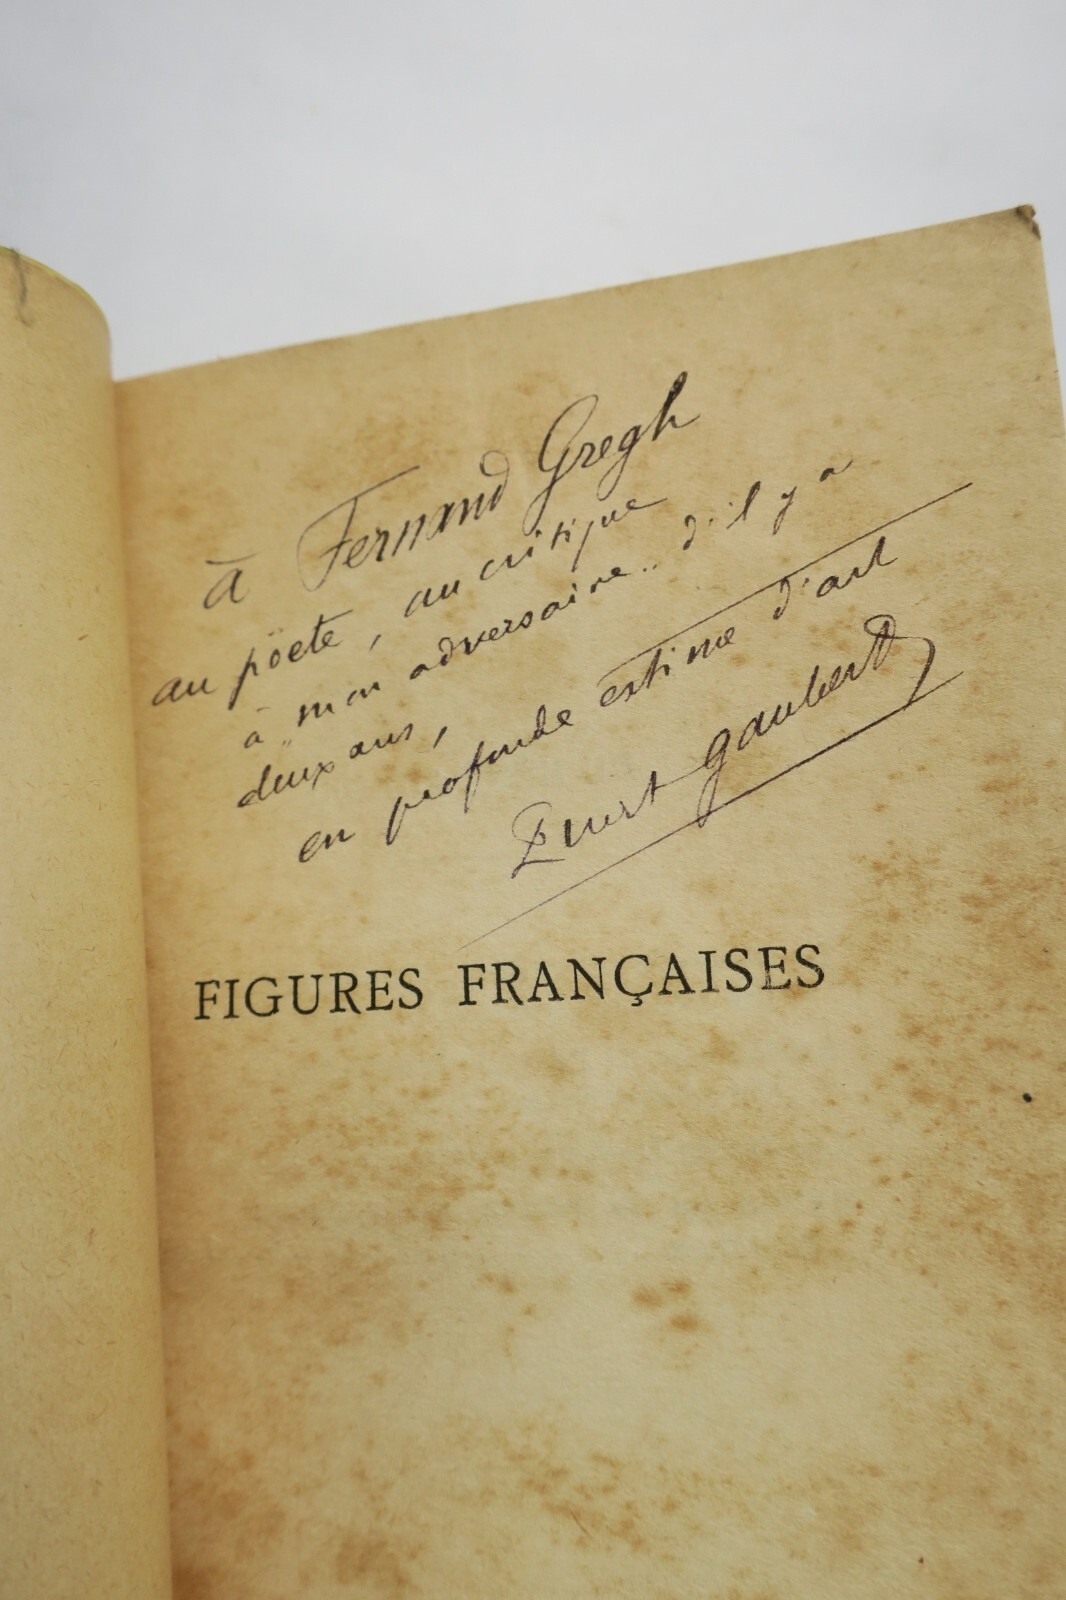 à Fernand Gregh
au poëte, au critique
à "mon adversaire" d'il y a
deux ans,
en profonde estime d'art
Ernest Gaubert
FIGURES FRANÇAISES